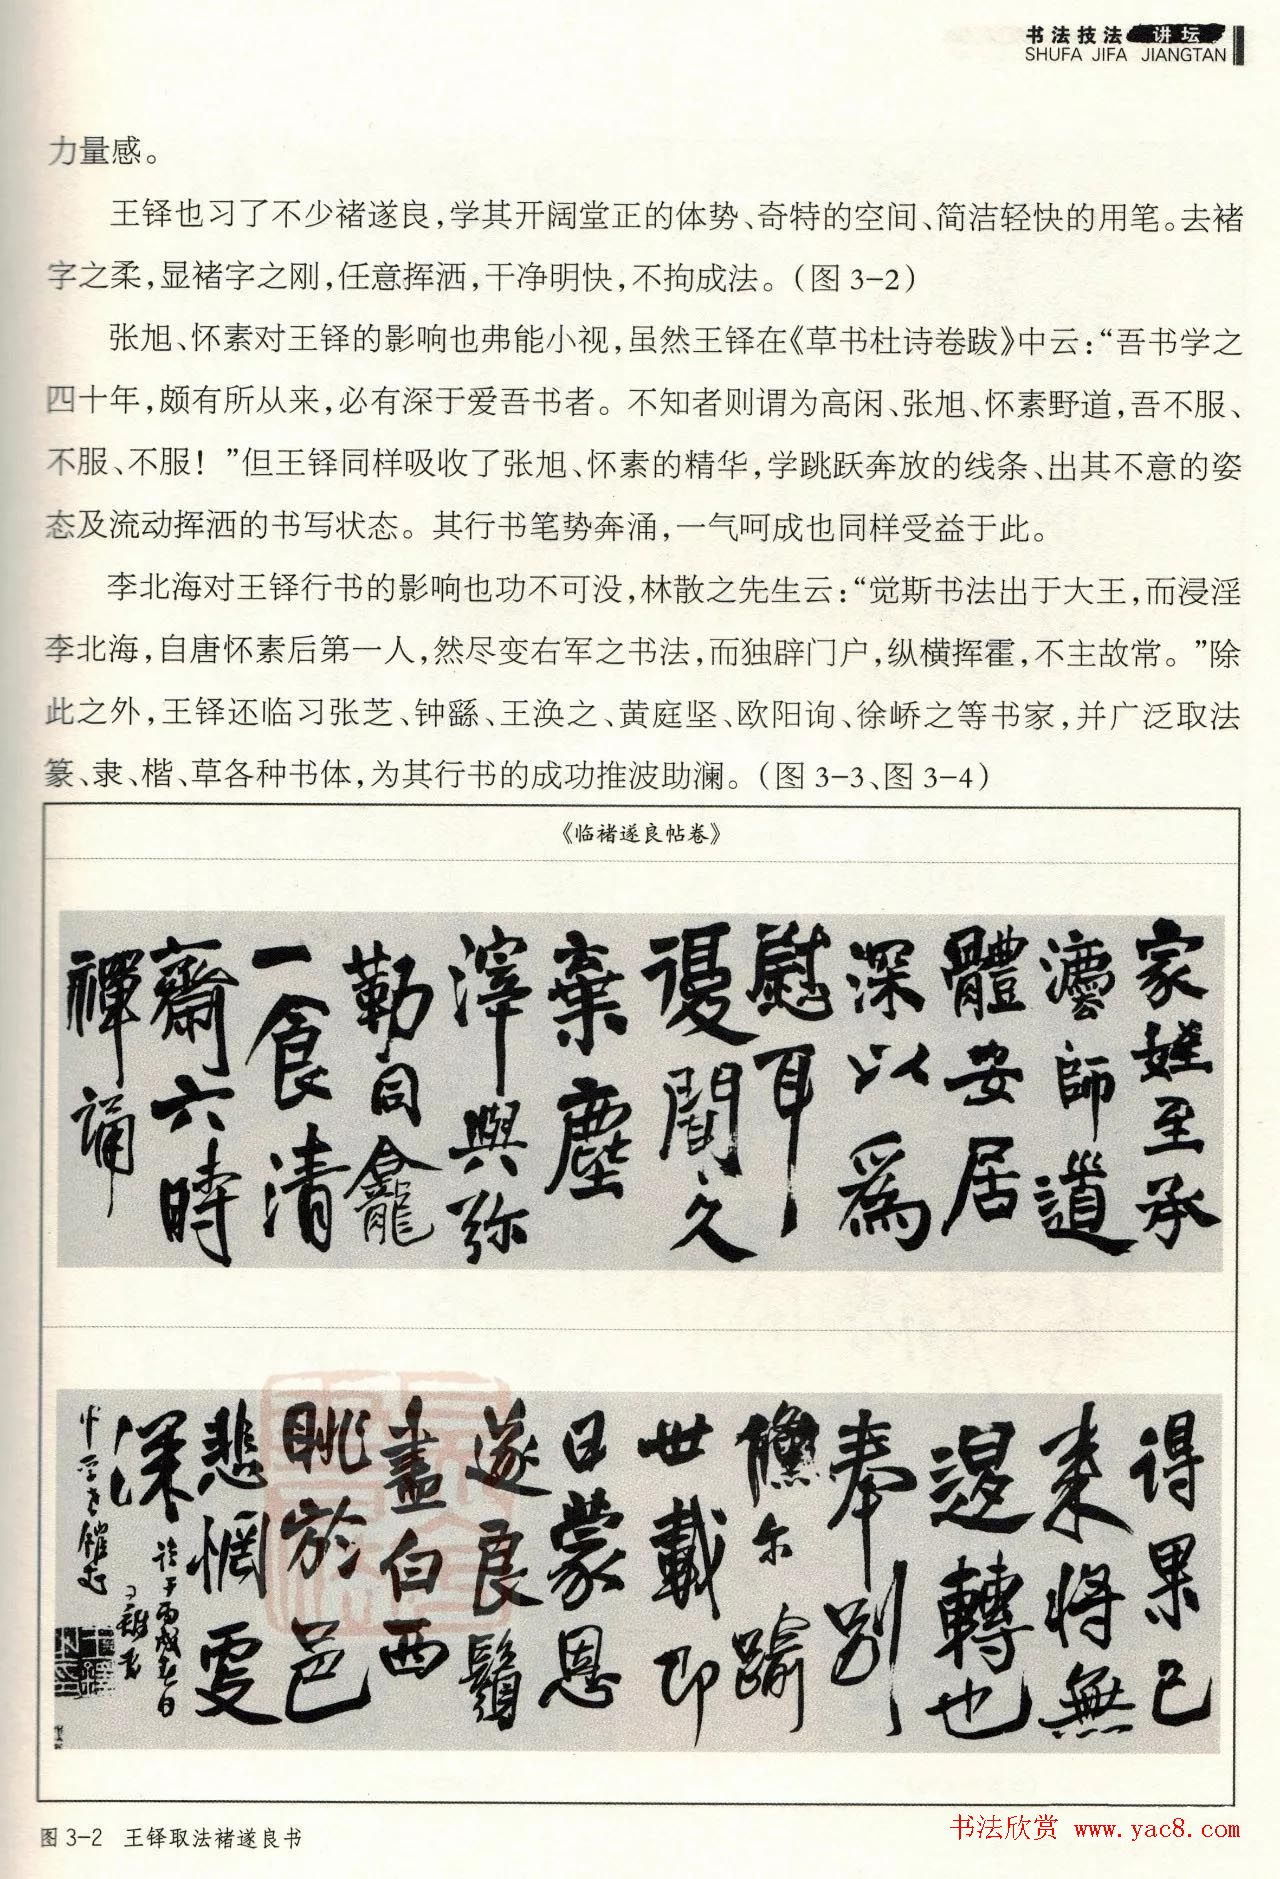 书法技法 讲坛
SHUFA JIFA JIANGTAN
力量感。
王铎也习了不少褚遂良，学其开阔堂正的体势、奇特的空间、简洁轻快的用笔。去褚
字之柔，显褚字之刚，任意挥洒，干净明快，不拘成法。（图 3-2）
张旭、怀素对王铎的影响也弗能小视，虽然王铎在《草书杜诗卷跋》中云：“吾书学之
四十年，颇有所从来，必有深于爱吾书者。不知者则谓为高闲、张旭、怀素野道，吾不服、
不服、不服！”但王铎同样吸收了张旭、怀素的精华，学跳跃奔放的线条、出其不意的姿
态及流动挥洒的书写状态。其行书笔势奔涌，一气呵成也同样受益于此。
李北海对王铎行书的影响也功不可没，林散之先生云：“觉斯书法出于大王，而浸淫
李北海，自唐怀素后第一人，然尽变右军之书法，而独辟门户，纵横挥霍，不主故常。”除
此之外，王铎还临习张芝、钟繇、王涣之、黄庭坚、欧阳询、徐峤之等书家，并广泛取法
篆、隶、楷、草各种书体，为其行书的成功推波助澜。（图 3-3、图 3-4）
《临褚遂良帖卷》
家姪至承
灋師道
體安居
深以為
慰耳
復聞久
棄塵
滓與弥
勒同龕
一食清
齋六時
禪誦
得果已
来将無
退轉也
奉别
儵尔踰
世載即
日蒙恩
遂良鬚
盡白西
眺於邑
悲惘更
深
图 3-2 王铎取法褚遂良书
书法欣赏 www.yac8.com